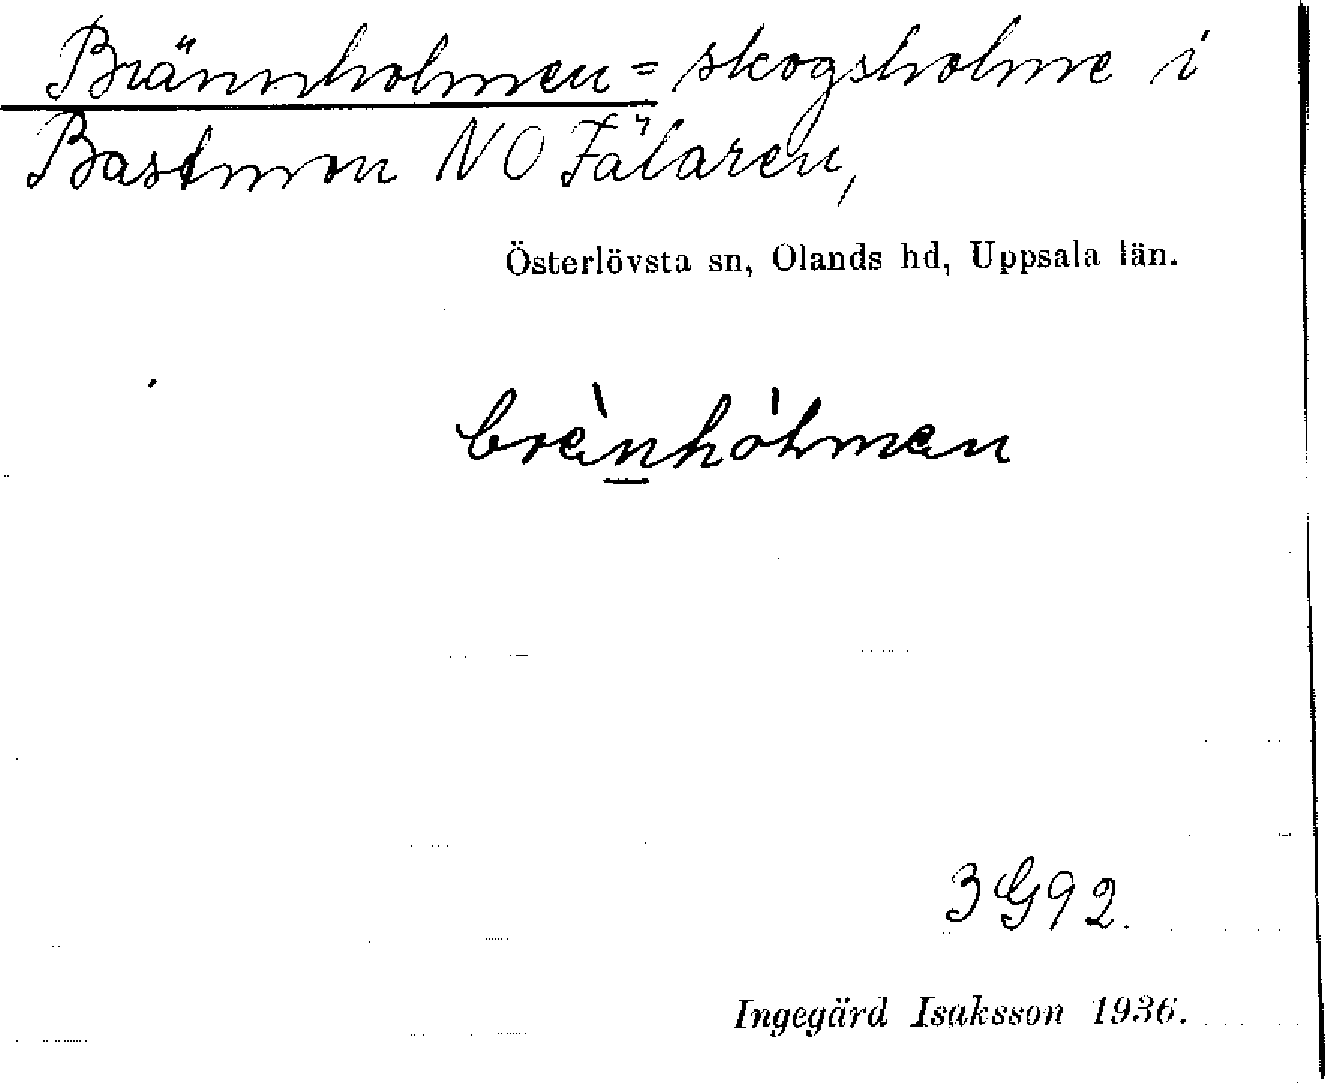 Brännholmen = skogsholme i
Bastmon NO Fälaren,
Österlövsta sn, Olands hd, Uppsala län.
brènhòlmen
3G92.
Ingegärd Isaksson 1936.